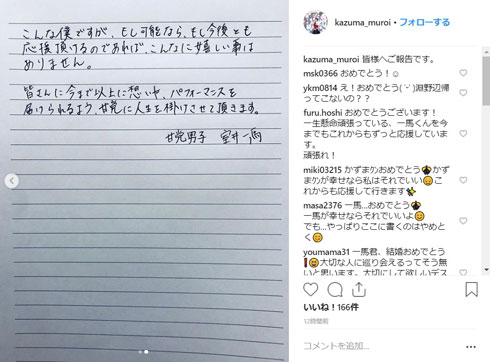 こんな僕ですが、もし可能なら、もし今後とも
応援頂けるのであれば、こんなに嬉しい事は
ありません。
皆さんに今まで以上に想いや、パフォーマンスを
届けられるよう、甘党に人生を掛けさせて頂きます。
甘党男子 室井一馬
kazuma_muroi • フォローする
kazuma_muroi 皆様へご報告です。
msk0366 おめでとう!☺
ykm0814 え!おめでとう( ˙-˙ )淵野辺帰
ってこないの??
furu.hoshi おめでとうございます!
一生懸命頑張っている、一馬くんを今
までもこれからもずっと応援していま
す。
頑張れ!
miki03215 かずまｸﾝおめでとう
かず
まｸﾝが幸せなら私はそれでいい
こ
れからも応援して行きます
masa2376 一馬…おめでとう
一馬が幸せならそれでいいよ
でも…やっぱりここに書くのはやめと
く
youmama31 一馬君、結婚おめでとう
大切な人に巡り会えるってそう無
いと思います。大切にして欲しいデス
いいね!166件
12時間前
コメントを追加...